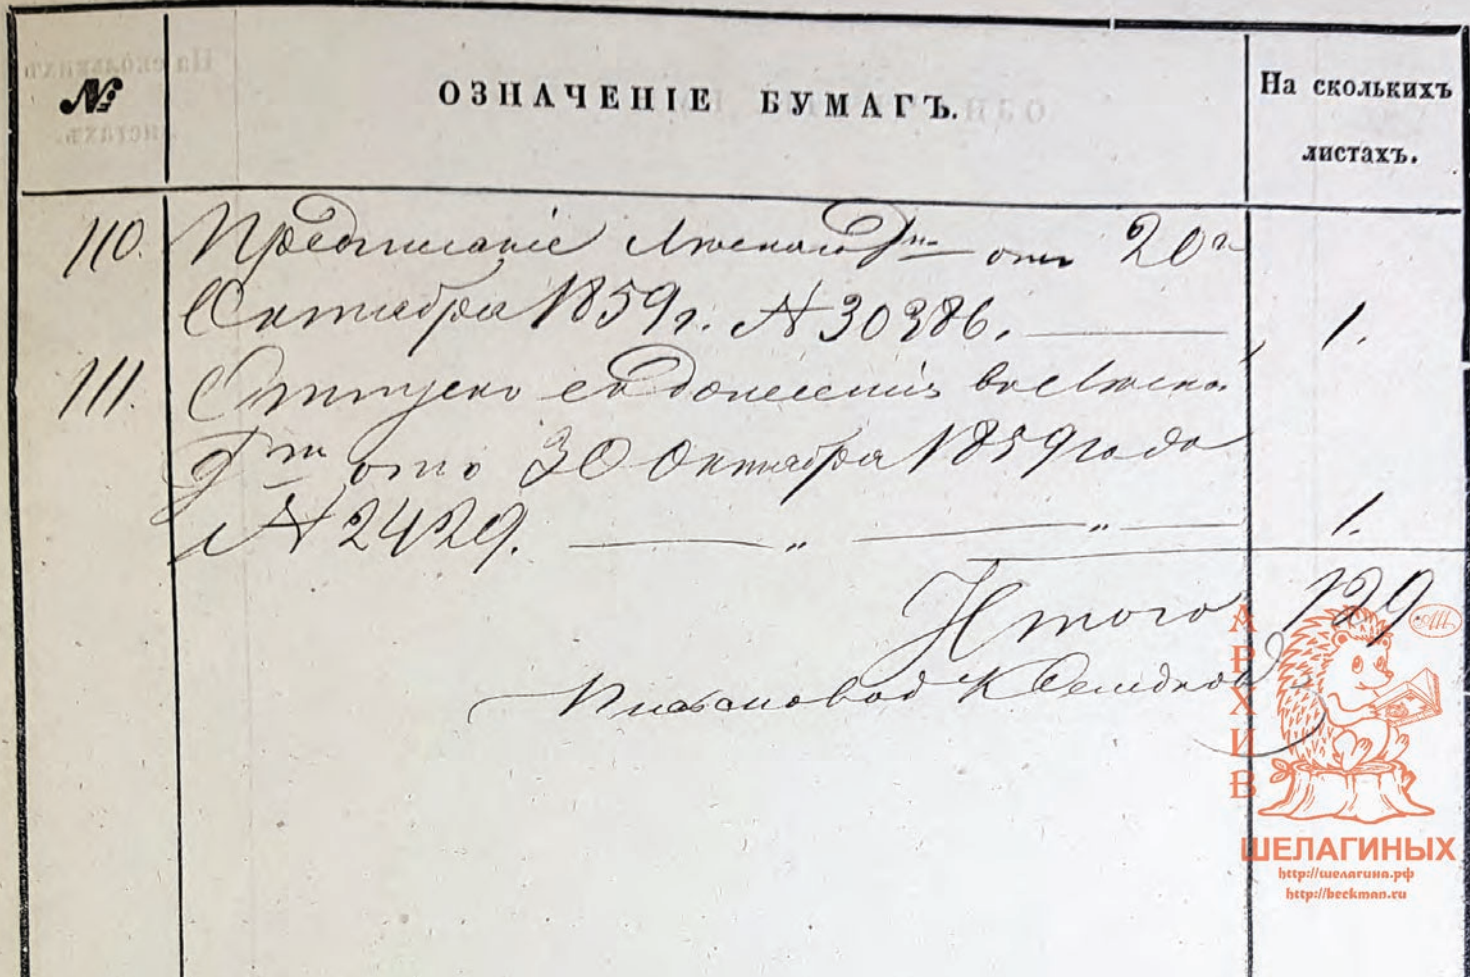 №
ОЗНАЧЕНІЕ БУМАГЪ.
На сколькихъ
листахъ.
110. Предписаніе отъ 20го
Октября 1859 г. № 30386. 1.
111. Отпускъ съ донесенія
отъ 30 Октября 1859 года
№ 2429. — „ — „ — 1.
Итого 129
Письмовод
АРХИВ
ШЕЛАГИНЫХ
http://шелагина.рф
http://beckman.ru